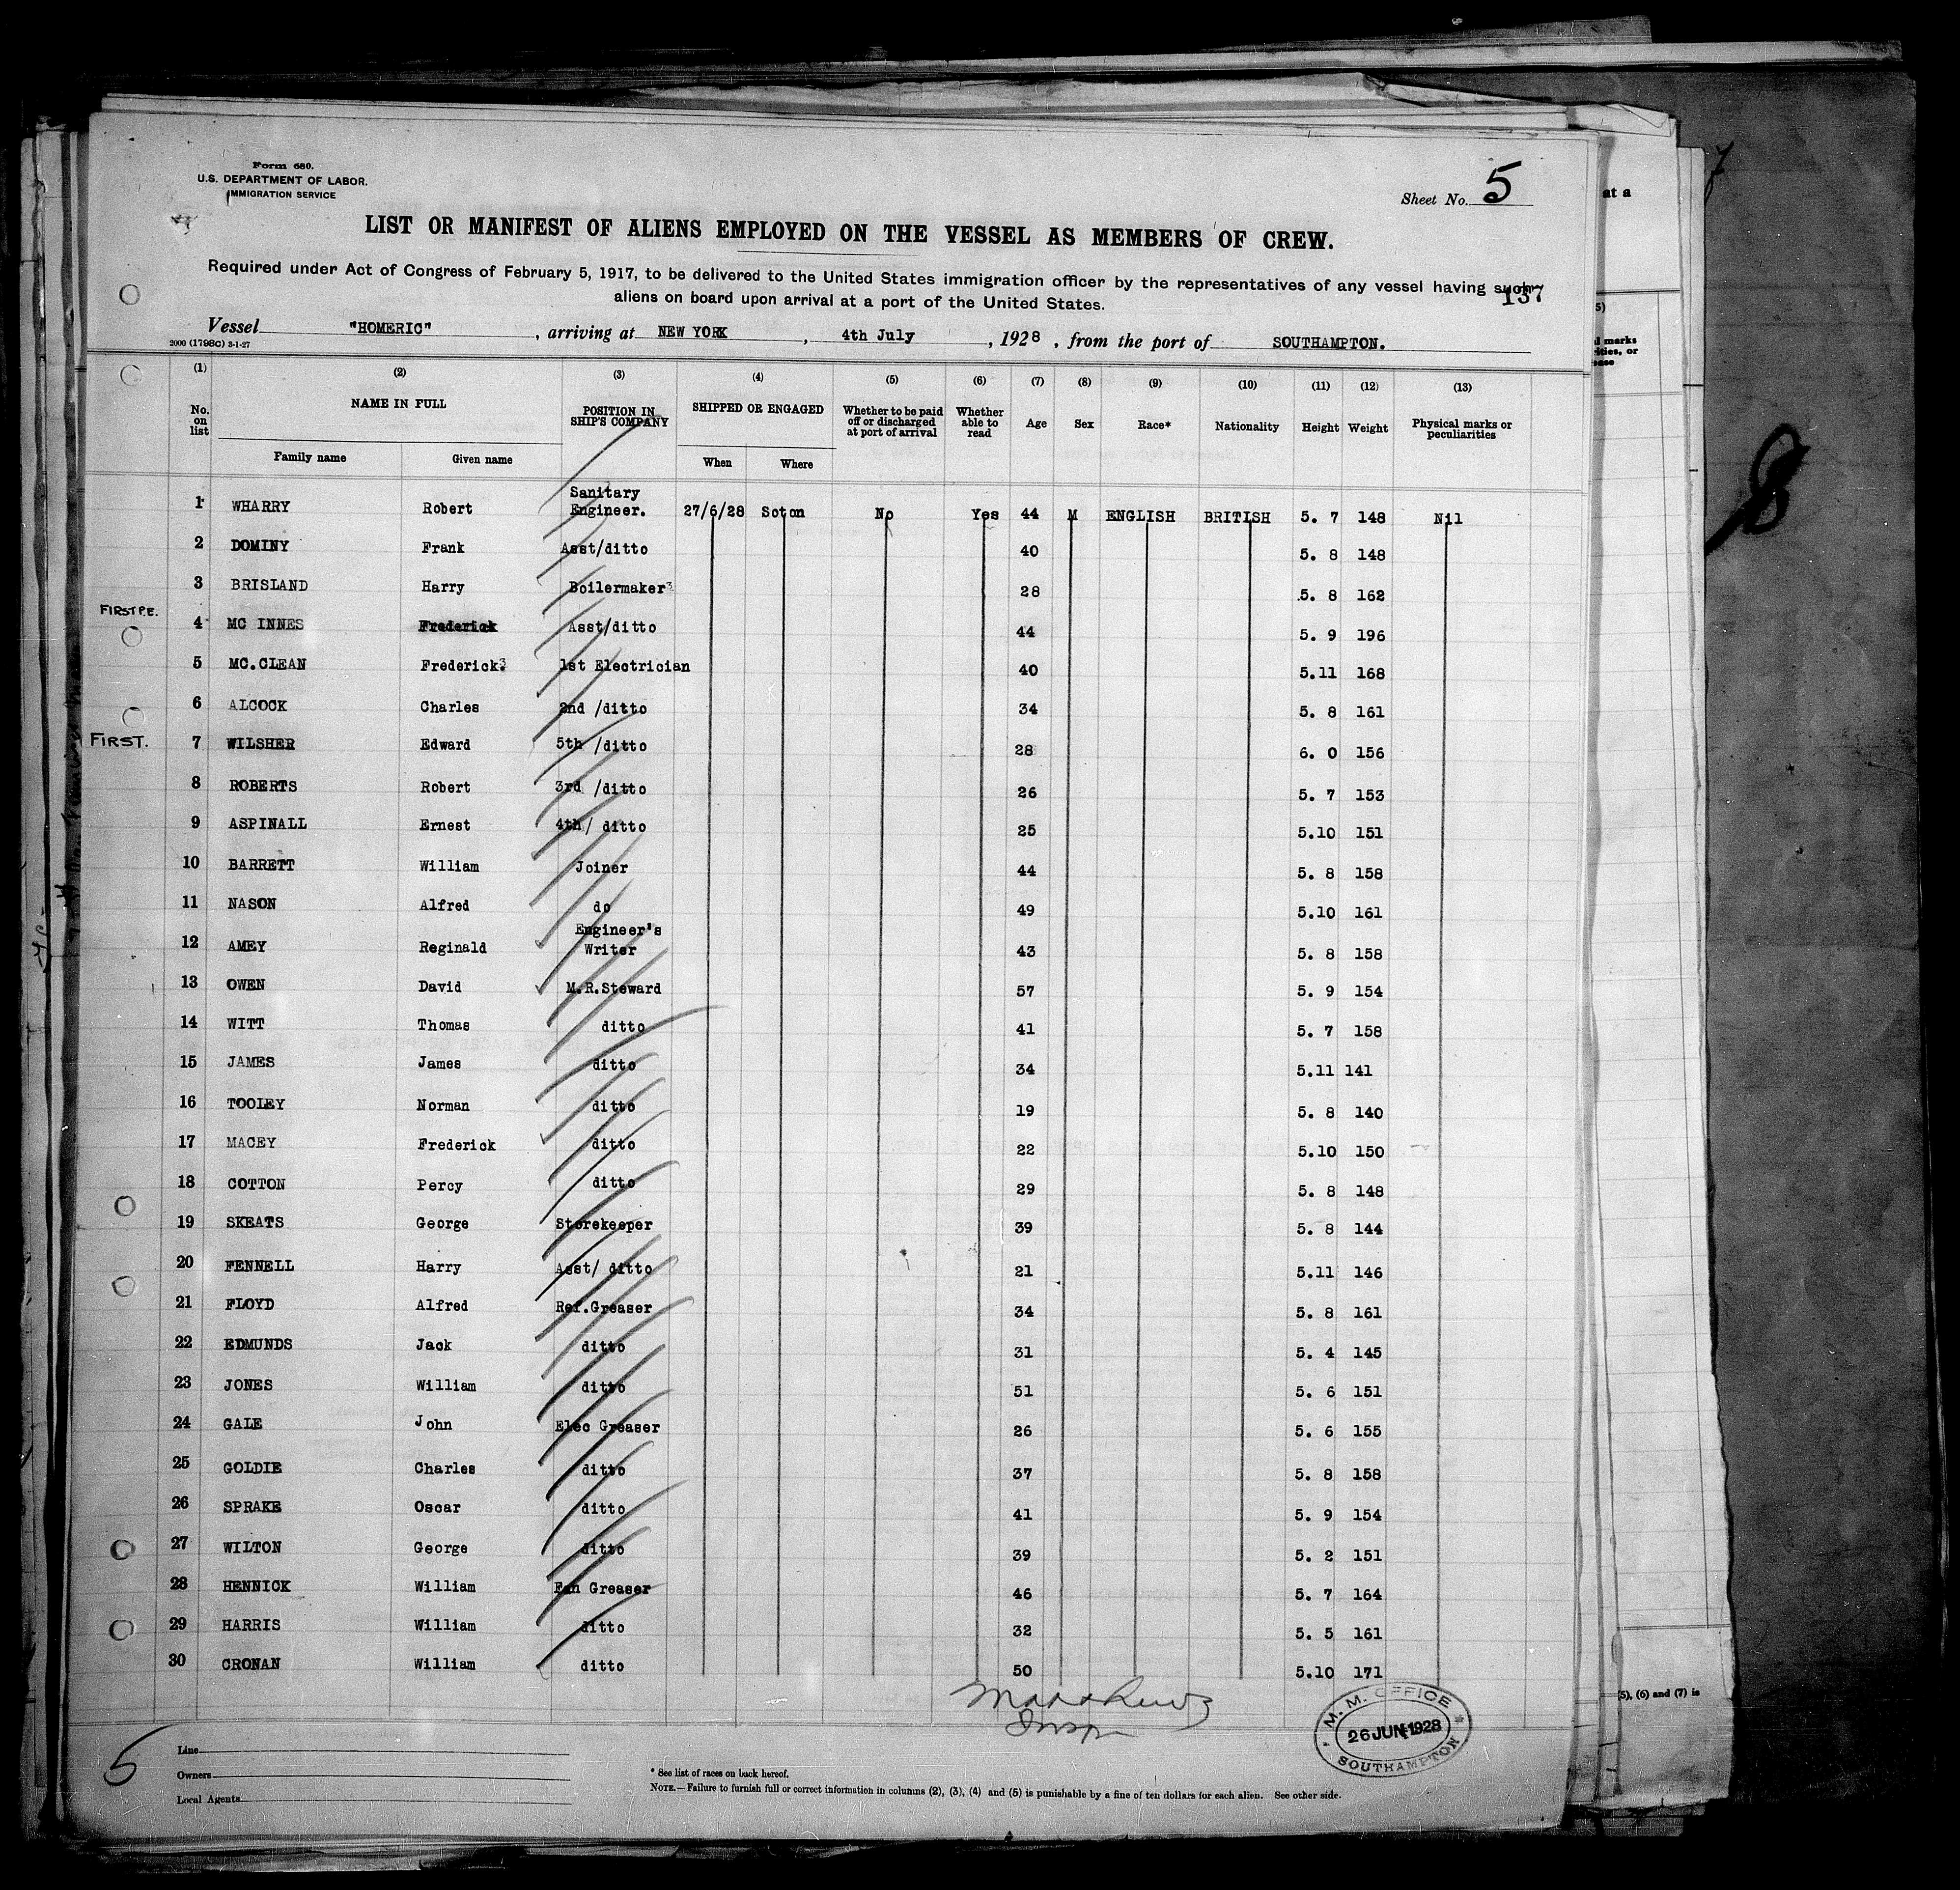 Form 680.
U.S. DEPARTMENT OF LABOR.
IMMIGRATION SERVICE
Sheet No. 5
LIST OR MANIFEST OF ALIENS EMPLOYED ON THE VESSEL AS MEMBERS OF CREW.
Required under Act of Congress of February 5, 1917, to be delivered to the United States immigration officer by the representatives of any vessel having such
aliens on board upon arrival at a port of the United States.
137
Vessel "HOMERIC", arriving at NEW YORK, 4th July, 1928, from the port of SOUTHAMPTON.
2000 (1798C) 3-1-27
(1) (2) (3) (4) (5) (6) (7) (8) (9) (10) (11) (12) (13)
No. on list NAME IN FULL POSITION IN SHIP'S COMPANY SHIPPED OR ENGAGED Whether to be paid off or discharged at port of arrival Whether able to read Age Sex Race* Nationality Height Weight Physical marks or peculiarities
Family name Given name When Where
1 WHARRY Robert Sanitary Engineer. 27/6/28 Soton No Yes 44 M ENGLISH BRITISH 5. 7 148 Nil
2 DOMINY Frank Asst/ditto 40 5. 8 148
3 BRISLAND Harry Boilermaker 28 5. 8 162
FIRST P.E.
4 MC INNES Frederick Asst/ditto 44 5. 9 196
5 MC.CLEAN Frederick. 1st Electrician 40 5.11 168
6 ALCOCK Charles 2nd /ditto 34 5. 8 161
FIRST. 7 WILSHER Edward 5th /ditto 28 6. 0 156
8 ROBERTS Robert 3rd /ditto 26 5. 7 153
9 ASPINALL Ernest 4th/ ditto 25 5.10 151
10 BARRETT William Joiner 44 5. 8 158
11 NASON Alfred do 49 5.10 161
12 AMEY Reginald Engineer's Writer 43 5. 8 158
13 OWEN David M.R.Steward 57 5. 9 154
14 WITT Thomas ditto 41 5. 7 158
15 JAMES James ditto 34 5.11 141
16 TOOLEY Norman ditto 19 5. 8 140
17 MACEY Frederick ditto 22 5.10 150
18 COTTON Percy ditto 29 5. 8 148
19 SKEATS George Storekeeper 39 5. 8 144
20 FENNELL Harry Asst/ ditto 21 5.11 146
21 FLOYD Alfred Ref.Greaser 34 5. 8 161
22 EDMUNDS Jack ditto 31 5. 4 145
23 JONES William ditto 51 5. 6 151
24 GALE John Elec Greaser 26 5. 6 155
25 GOLDIE Charles ditto 37 5. 8 158
26 SPRAKE Oscar ditto 41 5. 9 154
27 WILTON George ditto 39 5. 2 151
28 HENNICK William Fan Greaser 46 5. 7 164
29 HARRIS William ditto 32 5. 5 161
30 CRONAN William ditto 50 5.10 171
M. M. OFFICE
26 JUN 1928
SOUTHAMPTON
5
Line
Owners
Local Agents
* See list of races on back hereof.
NOTE.—Failure to furnish full or correct information in columns (2), (3), (4) and (5) is punishable by a fine of ten dollars for each alien. See other side.
at a
(5), (6) and (7) is
8